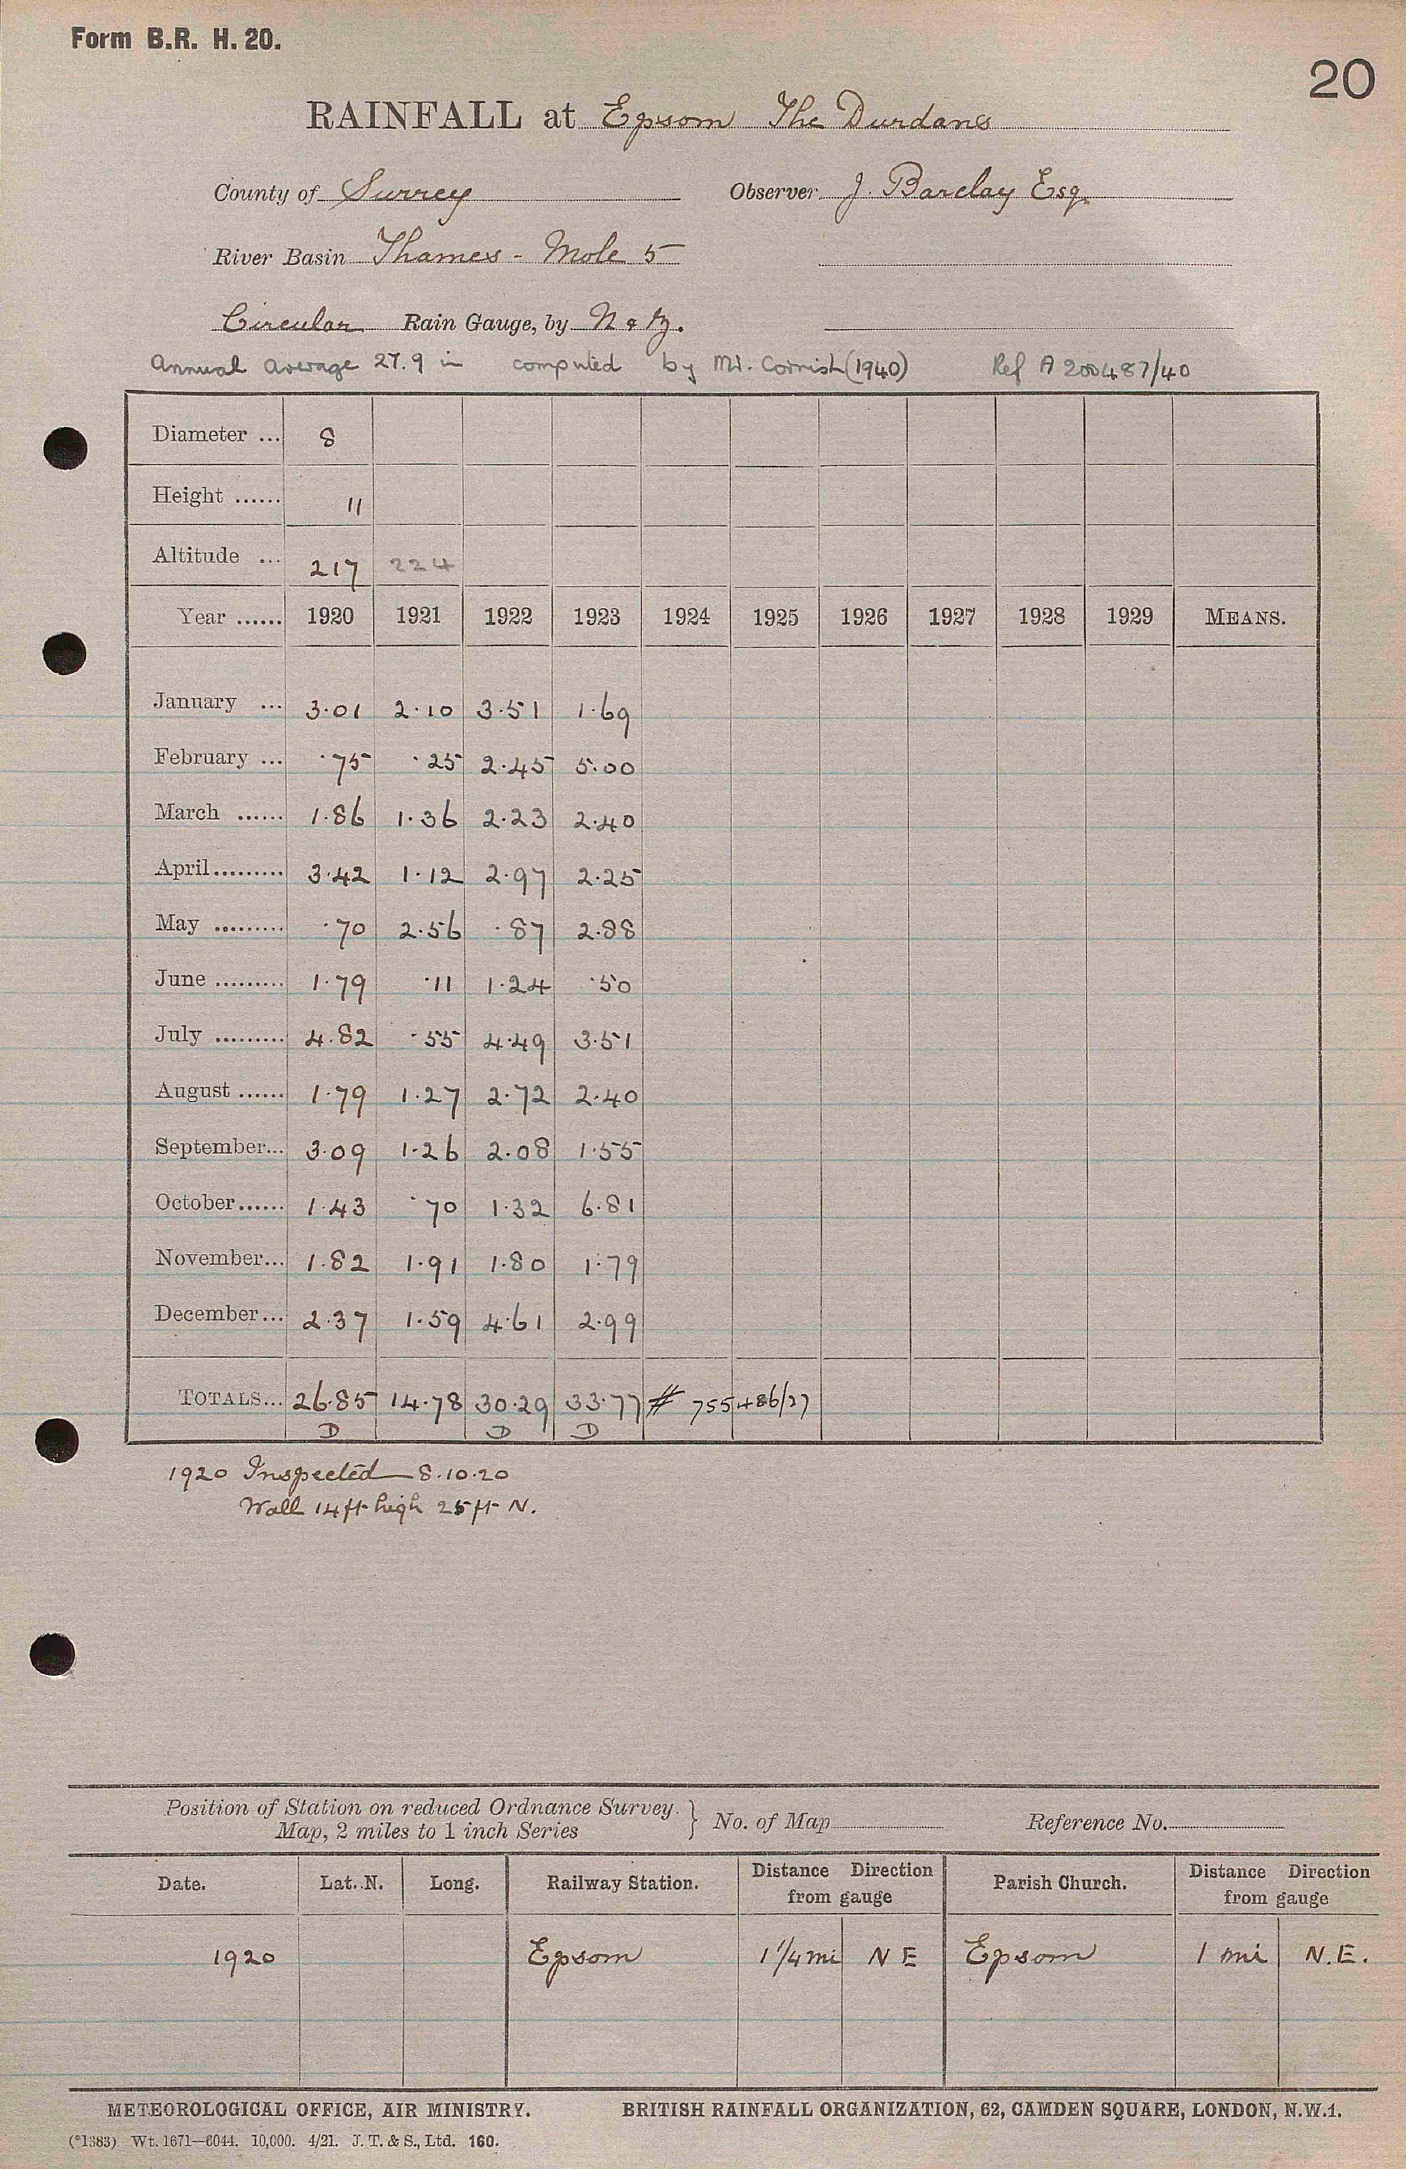 Form B.R. H. 20.
20
RAINFALL at Epsom The Durdans
County of Surrey Observer J. Barclay Esq.
River Basin Thames - Mole 5
Circular Rain Gauge, by N & Z.
Annual Average 27.9 in computed by Mr. Cornish (1940) Ref A 200487/40
Diameter ... 8
Height ...... 11
Altitude ... 217 224
Year ...... 1920 1921 1922 1923 1924 1925 1926 1927 1928 1929 MEANS.
January ... 3.01 2.10 3.51 1.69
February ... .75 .25 2.45 5.00
March ...... 1.86 1.36 2.23 2.40
April ......... 3.42 1.12 2.97 2.25
May ......... .70 2.56 .87 2.88
June ......... 1.79 .11 1.24 .50
July ......... 4.82 .55 4.49 3.51
August ...... 1.79 1.27 2.72 2.40
September... 3.09 1.26 2.08 1.55
October...... 1.43 .70 1.32 6.81
November... 1.82 1.91 1.80 1.79
December... 2.37 1.59 4.61 2.99
TOTALS... 26.85 14.78 30.29 33.77 # 755486/27
D D D
1920 Inspected 8.10.20
Wall 14 ft high 25 ft N.
Position of Station on reduced Ordnance Survey
Map, 2 miles to 1 inch Series } No. of Map Reference No.
Date. Lat. N. Long. Railway Station. Distance Direction from gauge Parish Church. Distance Direction from gauge
1920 Epsom 1 1/4 mi N E Epsom 1 mi N.E.
METEOROLOGICAL OFFICE, AIR MINISTRY. BRITISH RAINFALL ORGANIZATION, 62, CAMDEN SQUARE, LONDON, N.W.1.
(*1383) Wt. 1671—6044. 10,000. 4/21. J. T. & S., Ltd. 160.